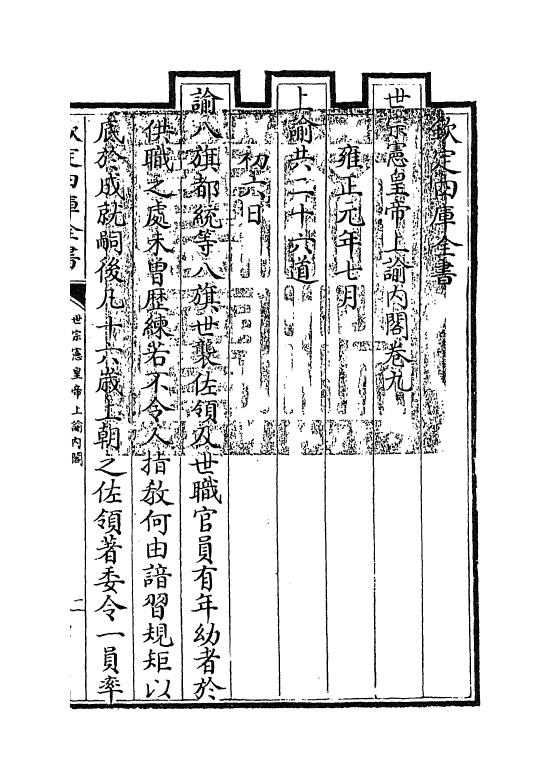 欽定四庫全書
世宗憲皇帝上諭內閣卷九
雍正元年七月
上諭共二十六道
初六日
諭八旗都統等八旗世襲佐領及世職官員有年幼者於
供職之處未曾歴練若不令人指教何由諳習規矩以
底於成就嗣後凡十六歲上朝之佐領著委令一員率
欽定四庫全書
世宗憲皇帝上諭內閣